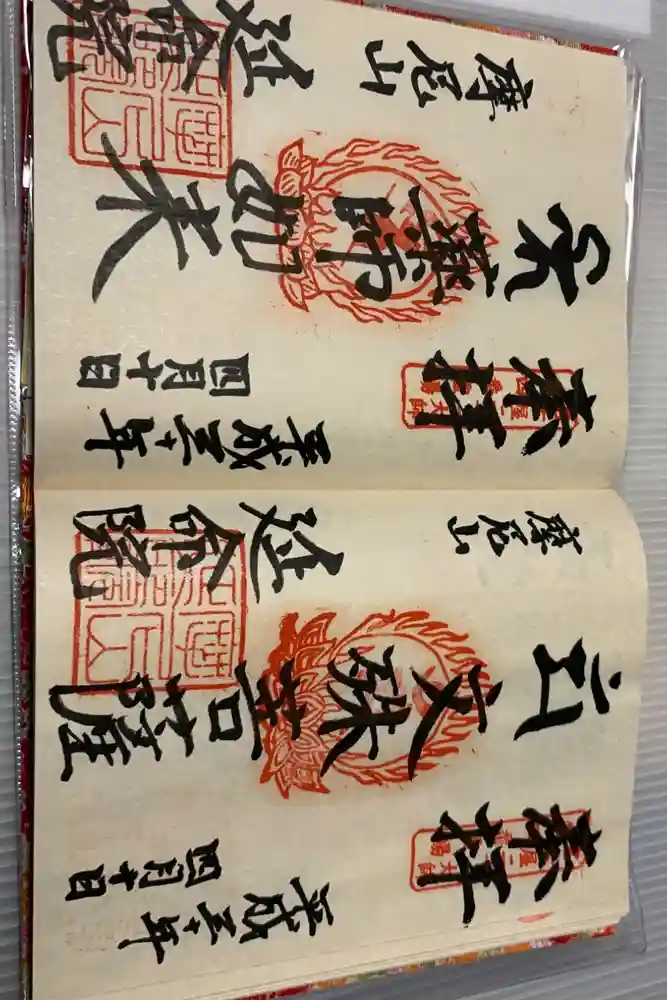 奉拝
平成三十年
四月十日
文殊菩薩
摩尼山
延命院
奉拝
平成三十年
四月十日
薬師如来
摩尼山
延命院